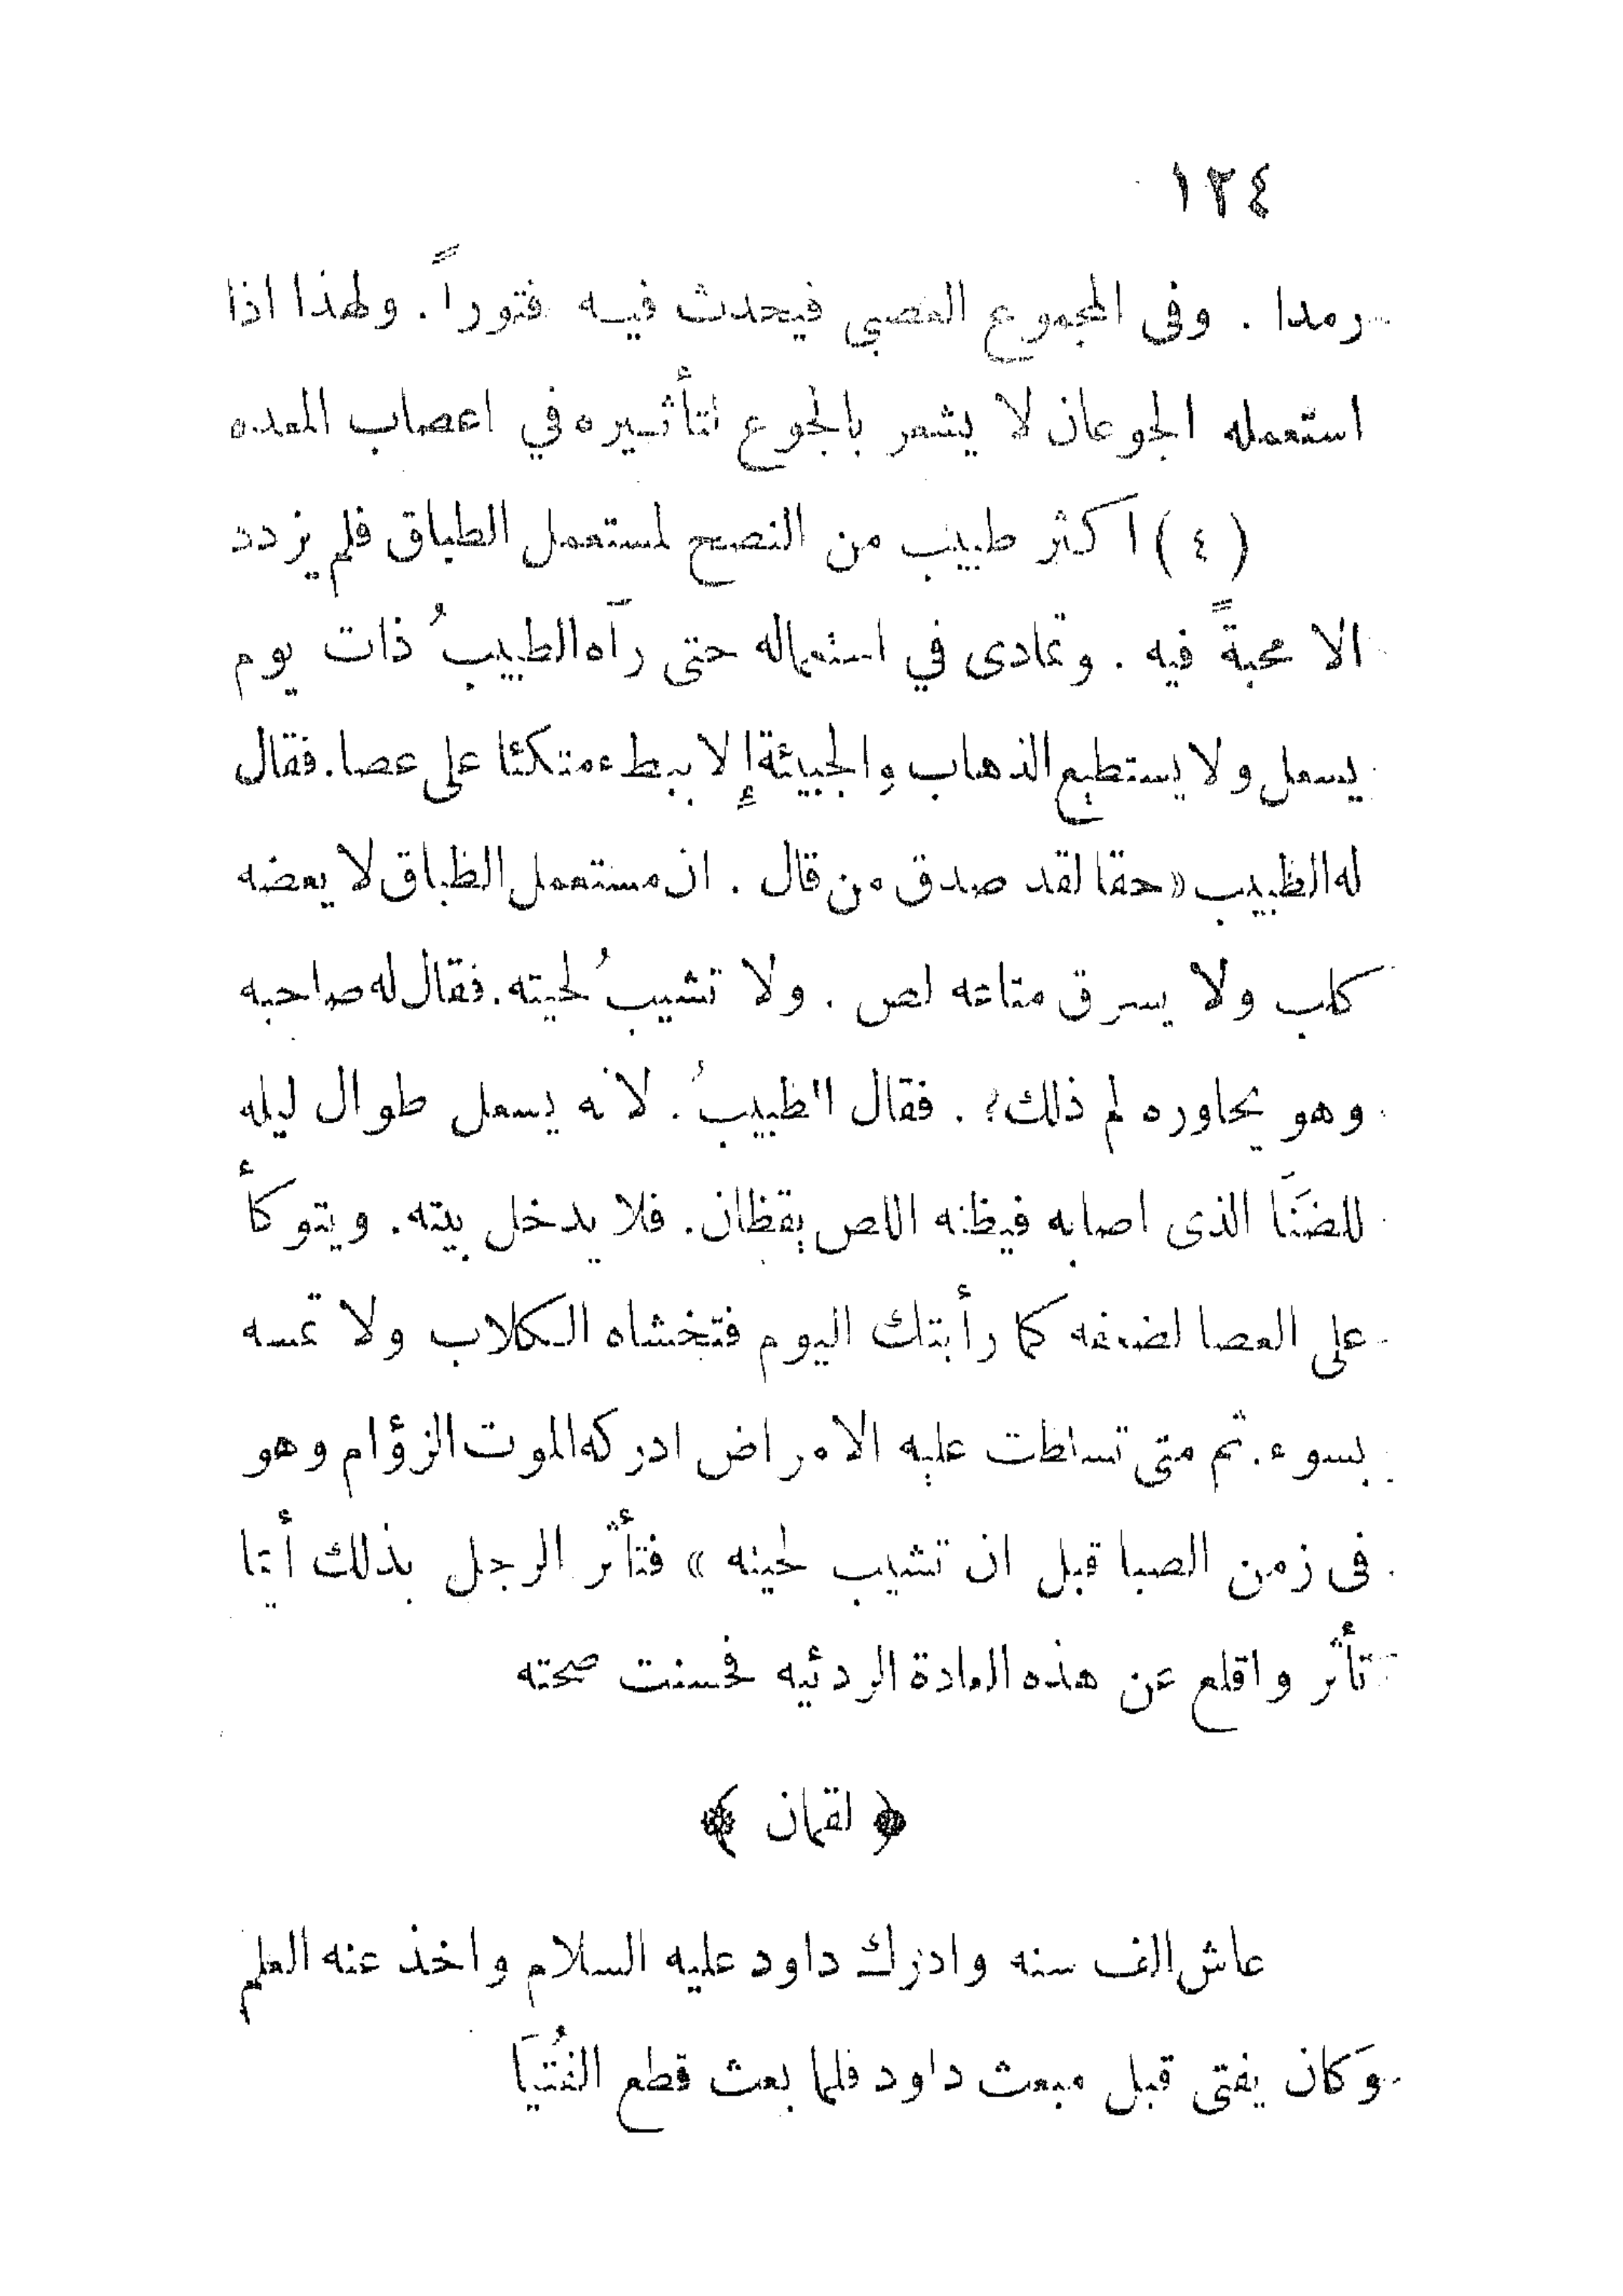 ١٢٤
رمدا . وفى المجموع العصبي فيحدث فيه فتوراً . ولهذا اذا
استعمله الجوعان لا يشعر بالجوع لتأثيره في اعصاب المعده
(٤) اكثر طبيب من النصح لمستعمل الطباق فلم يزدد
الا محبةً فيه . وتمادى في استعماله حتى رآه الطبيبُ ذات يوم
يسعل ولا يستطيع الذهاب والجيئة إلا ببطء متكئا على عصا . فقال
له الطبيب « حقا لقد صدق من قال . ان مستعمل الطباق لا يعضه
كلب ولا يسرق متاعه لص . ولا تشيبُ لحيته . فقال له صاحبه
وهو يحاوره لم ذلك؟ . فقال الطبيبُ . لانه يسعل طوال ليله
للضَنَا الذى اصابه فيظنه اللص يقظان . فلا يدخل بيته . ويتوكأ
على العصا لضعفه كما رأيتك اليوم فتخشاه الكلاب ولا تمسه
بسوء . ثم متى تسلطت عليه الامراض ادركه الموت الزؤام وهو
فى زمن الصبا قبل ان تشيب لحيته » فتأثر الرجل بذلك أيما
تأثر واقلع عن هذه العادة الردئيه فحسنت صحته
﴿ لقمان ﴾
عاش الف سنه وادرك داود عليه السلام واخذ عنه العلم
وكان يفتى قبل مبعث داود فلما بعث قطع الفُتيَا